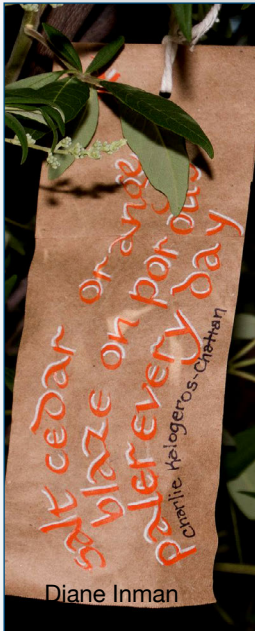 salt cedar orange
blaze on porous
paler every day
Charlie Kalogeros-Chattan
Diane Inman